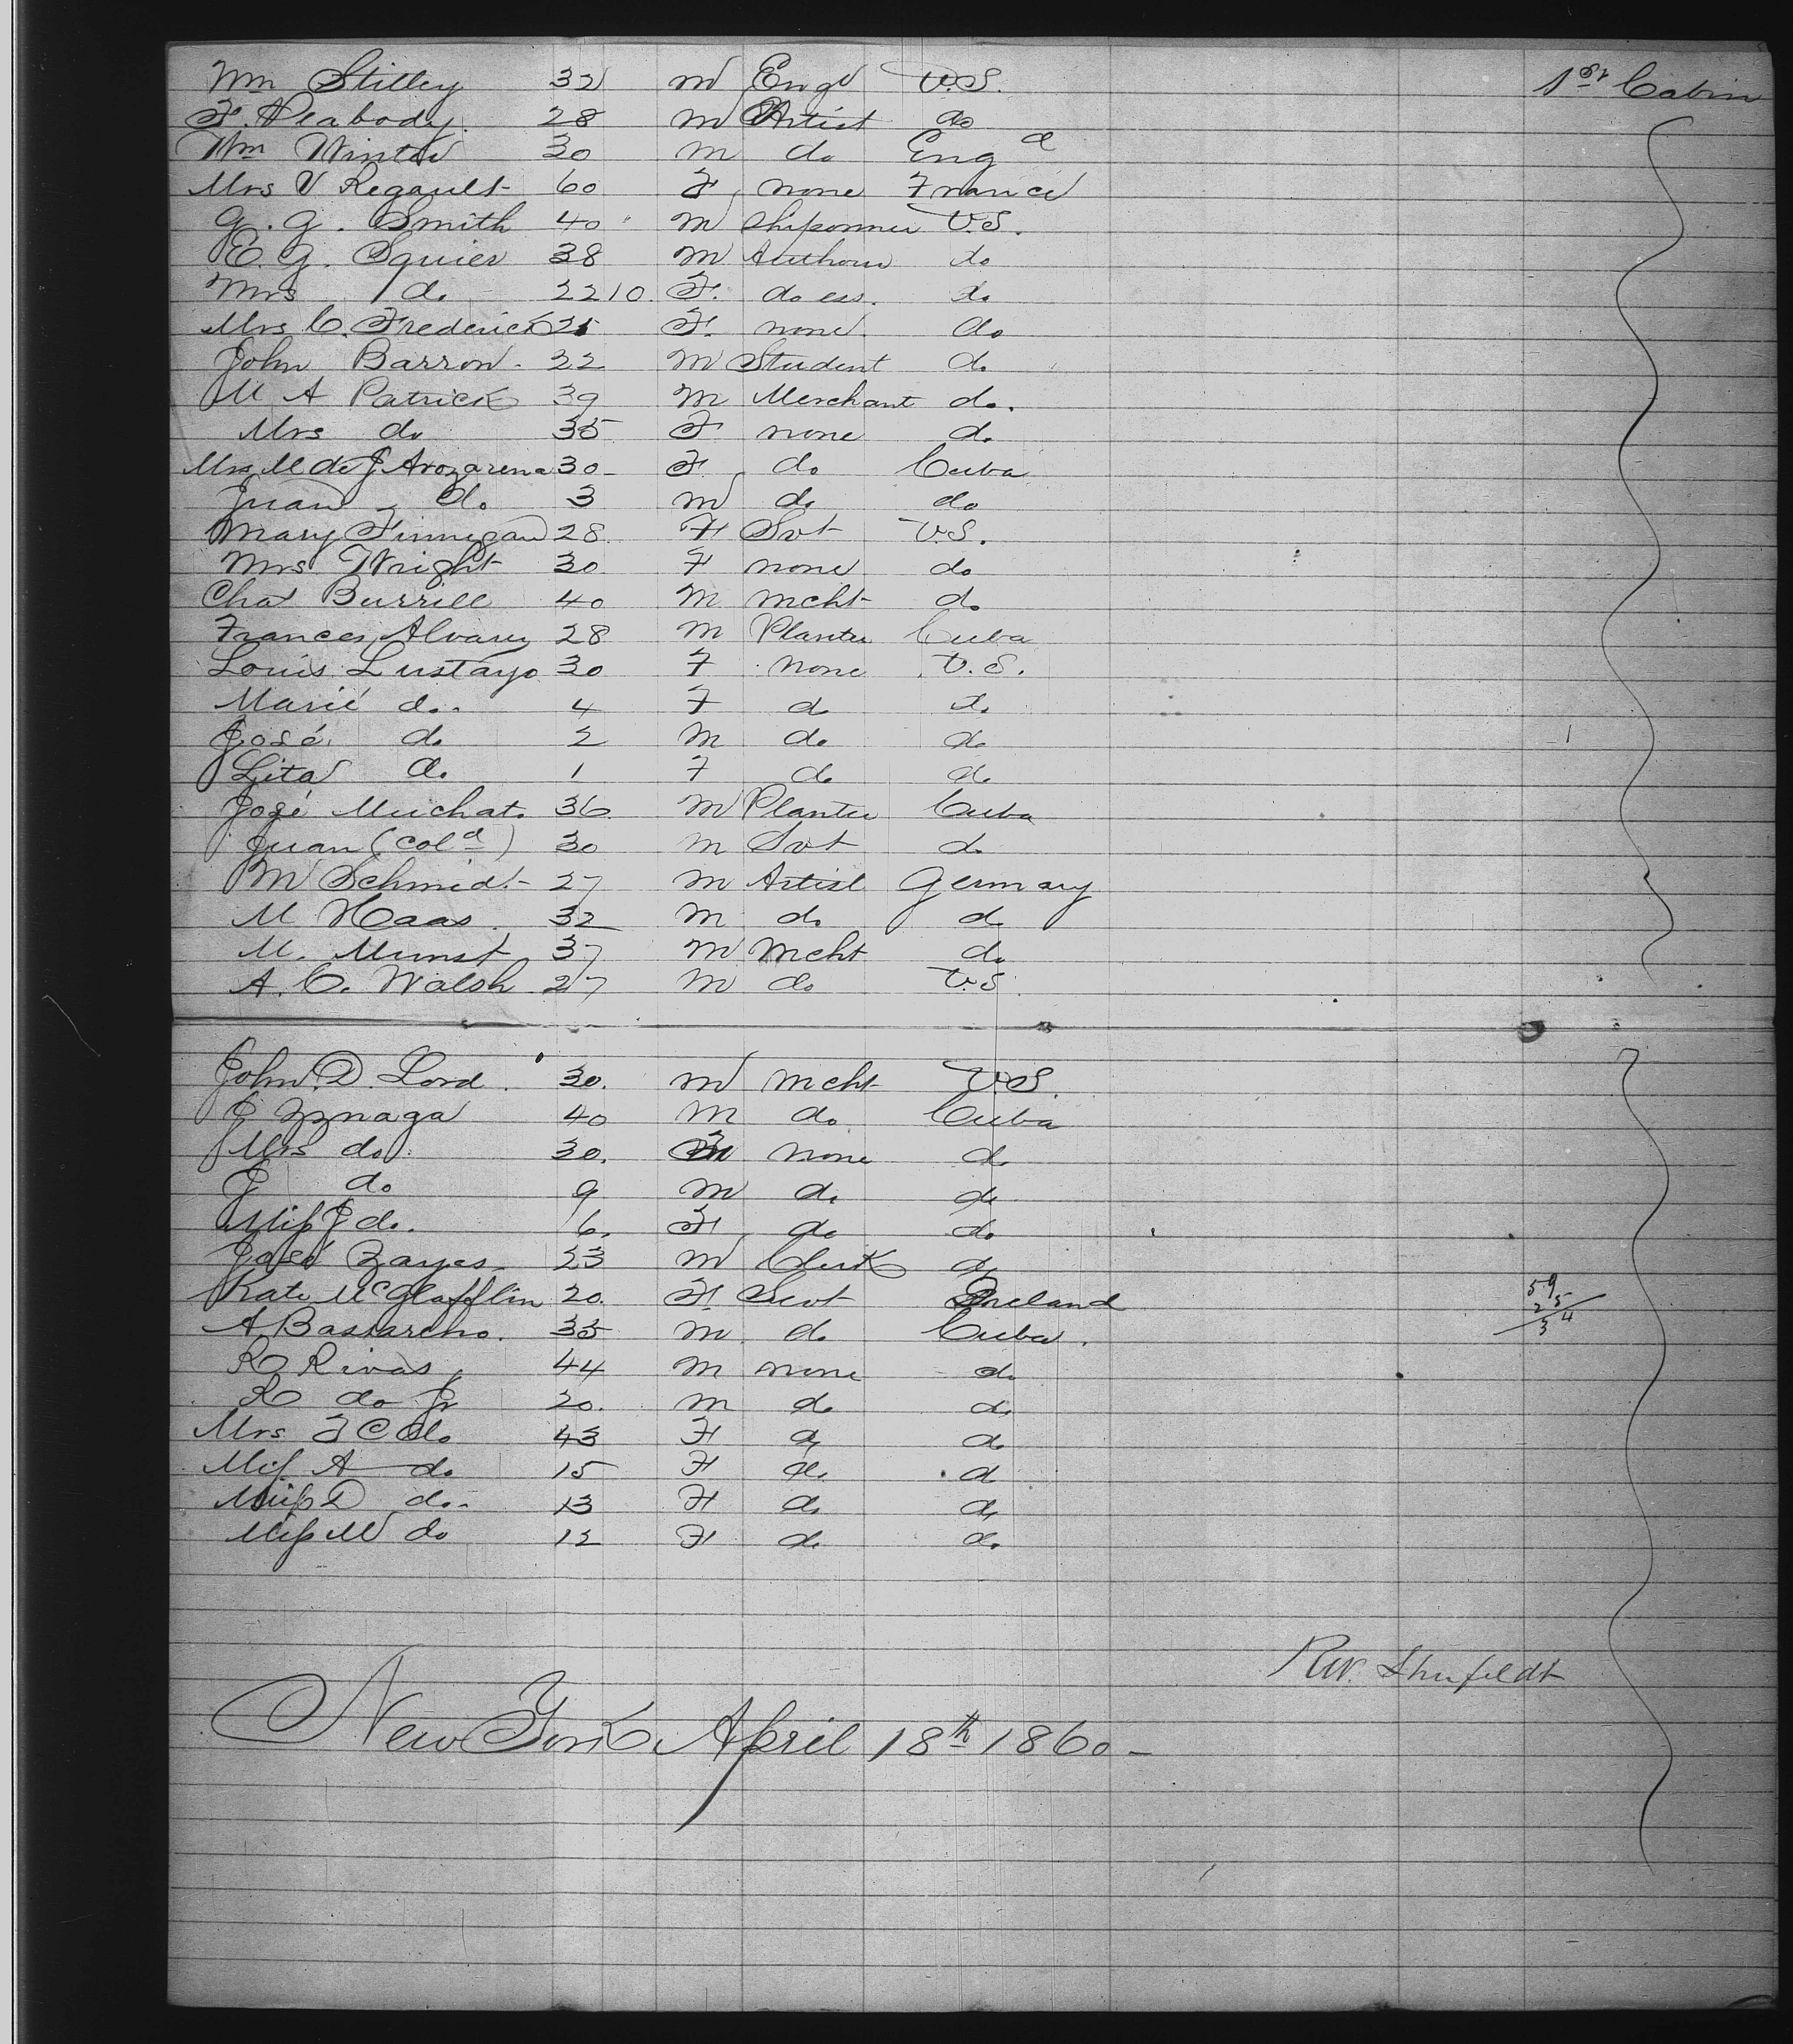 Wm Stilley 32 m Engr U.S. 1st Cabin
F. Peabody. 28 m Artist do
Wm Winter 30 m do Engd
Mrs V Regault 60 F none France
G. G. Smith 40 m Shipowner U.S.
E. G. Squier 38 m Authour do
Mrs do 22 10 F. do ess. do
Mrs C. Frederick 25 F. none. do
John Barron. 22 m Student do
M A Patrick 39 m Merchant do.
Mrs do 35 F none do
Mrs M de J Arozarena 30 F do Cuba
Juan do. 3 m do do
Mary Finnigan 28 F Svt U.S.
Mrs Wright 30 F none do
Chas Burrill 40 m mcht do
Frances Alvarez 28 m Planter Cuba
Louis Lustayo 30 F none U.S.
Marié do. 4 F do do
José do 2 m do do
Lita do. 1 F do do
José Muchat. 36 m Planter Cuba
Juan (Cold) 30 m Svt do
M Schmidt 27 m Artist Germany
M Haas. 32 m do do
M. Munst 37 m Mcht do
A. C. Walsh 27 m do U.S.
John D. Lord. 30. m mcht U.S.
J Yznaga 40 m do Cuba
Mrs do. 30. F none do
J do 9 m do do
Miss J do. 6. F do do
José Zayas 23 m Clerk do
Kate McGlafflin 20. F. Svt Ireland
A 35 m. do Cuba.
R Rivas, 44 m none do
R do Jr 20. m do do
Mrs F C do 43 F do do
Miss A do 15 F do do
Miss D do. 13 F do do
Miss M do 12 F do do
59
25
34
Rev. Shufeldt
New York April 18th 1860 –